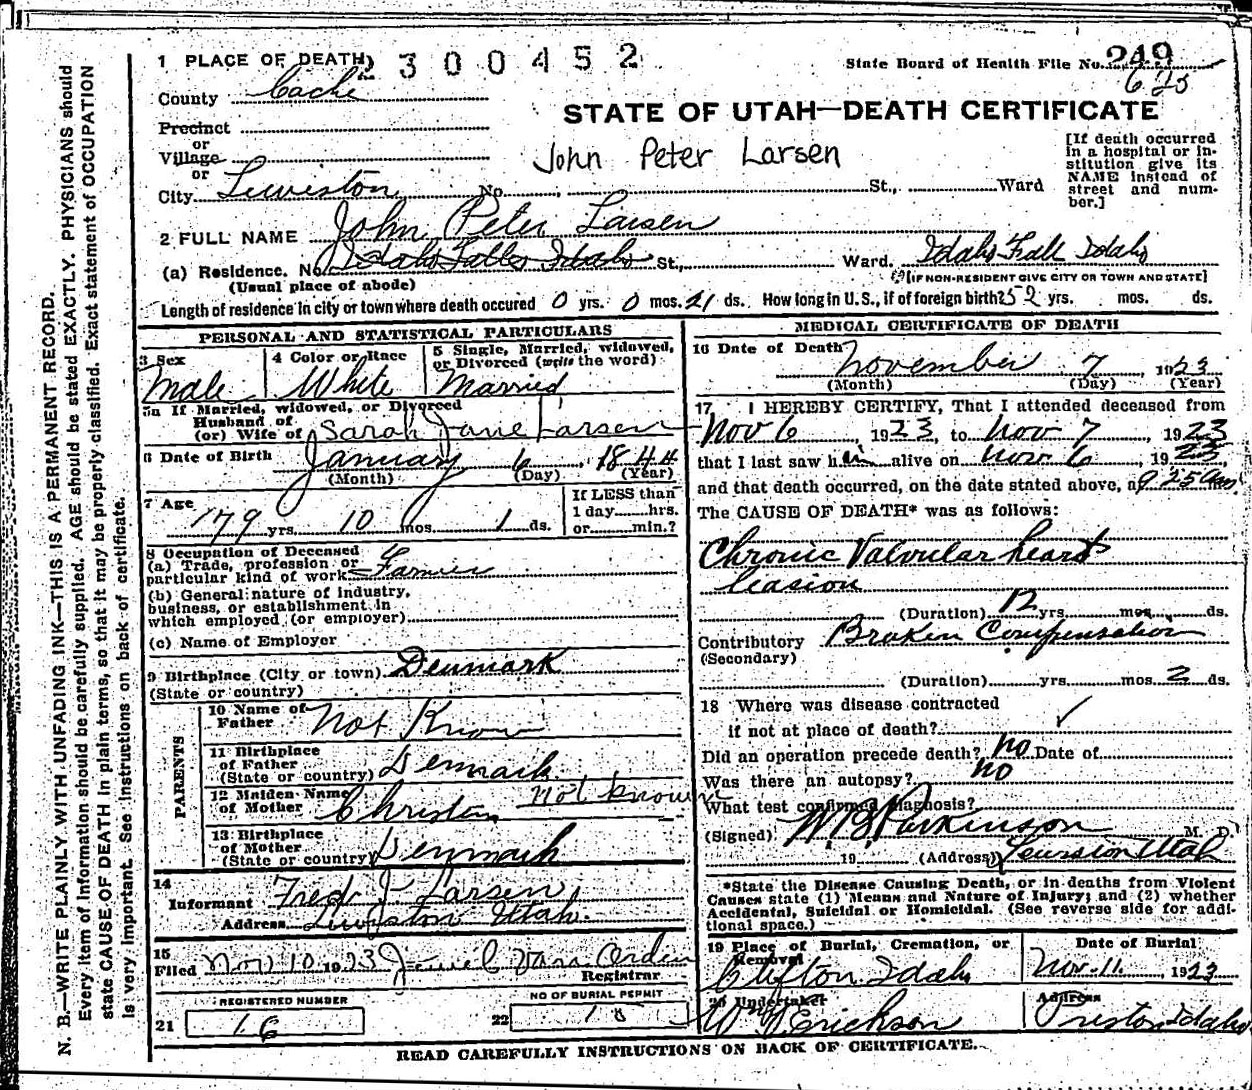 1 PLACE OF DEATH 2300452
State Board of Health File No. 249
625
County Cache
STATE OF UTAH—DEATH CERTIFICATE
Precinct
or
Village
or
John Peter Larsen
[If death occurred in a hospital or institution give its NAME instead of street and number.]
City Lewiston No. St., Ward
2 FULL NAME John Peter Larsen
(a) Residence. No. Idaho Falls Idaho St., Ward. Idaho Fall Idaho
(Usual place of abode) (IF NON-RESIDENT GIVE CITY OR TOWN AND STATE)
Length of residence in city or town where death occured 0 yrs. 0 mos. 21 ds. How long in U.S., if of foreign birth? 52 yrs. mos. ds.
PERSONAL AND STATISTICAL PARTICULARS
3 Sex
Male
4 Color or Race
White
5 Single, Married, widowed, or Divorced (write the word)
Married
5a If Married, widowed, or Divorced
Husband of
(or) Wife of Sarah Jane Larsen
6 Date of Birth January 6, 1844
(Month) (Day) (Year)
7 Age 79 yrs. 10 mos. 1 ds.
If LESS than
1 day hrs.
or min.?
8 Occupation of Deceased
(a) Trade, profession or
particular kind of work Farmer
(b) General nature of industry,
business, or establishment in
which employed (or employer)
(c) Name of Employer
9 Birthplace (City or town) Denmark
(State or country)
PARENTS
10 Name of
Father Not Know
11 Birthplace
of Father
(State or country) Denmark
12 Maiden Name
of Mother Christen not known
13 Birthplace
of Mother
(State or country) Denmark
14
Informant Fred J Larsen
Address Lewiston Utah.
15
Filed Nov 10 1923 Jewel Van Orden
Registrar
REGISTERED NUMBER
21 16
NO OF BURIAL PERMIT
22
MEDICAL CERTIFICATE OF DEATH
16 Date of Death November 7, 1923
(Month) (Day) (Year)
17 I HEREBY CERTIFY, That I attended deceased from
Nov 6, 1923, to Nov 7, 1923
that I last saw him alive on Nov 6, 1923
and that death occurred, on the date stated above, at 9 25 am
The CAUSE OF DEATH* was as follows:
Chronic Valvular heart
leasion
(Duration) 12 yrs. mos. ds.
Contributory Broken Compensation
(Secondary)
(Duration) yrs. mos. 2 ds.
18 Where was disease contracted
if not at place of death? ✓
Did an operation precede death? no Date of
Was there an autopsy? no
What test confirmed diagnosis?
(Signed) W B Parkinson M. D.
19 (Address) Lewiston Utah
*State the Disease Causing Death, or in deaths from Violent
Causes state (1) Means and Nature of Injury; and (2) whether
Accidental, Suicidal or Homicidal. (See reverse side for addi-
tional space.)
19 Place of Burial, Cremation, or
Removal
Clifton Idaho
Date of Burial
Nov. 11, 1923
20 Undertaker
W Erickson
Address
Preston, Idaho
READ CAREFULLY INSTRUCTIONS ON BACK OF CERTIFICATE.
N. B.—WRITE PLAINLY WITH UNFADING INK—THIS IS A PERMANENT RECORD.
Every item of information should be carefully supplied. AGE should be stated EXACTLY. PHYSICIANS should
state CAUSE OF DEATH in plain terms, so that it may be properly classified. Exact statement of OCCUPATION
is very important. See instructions on back of certificate.